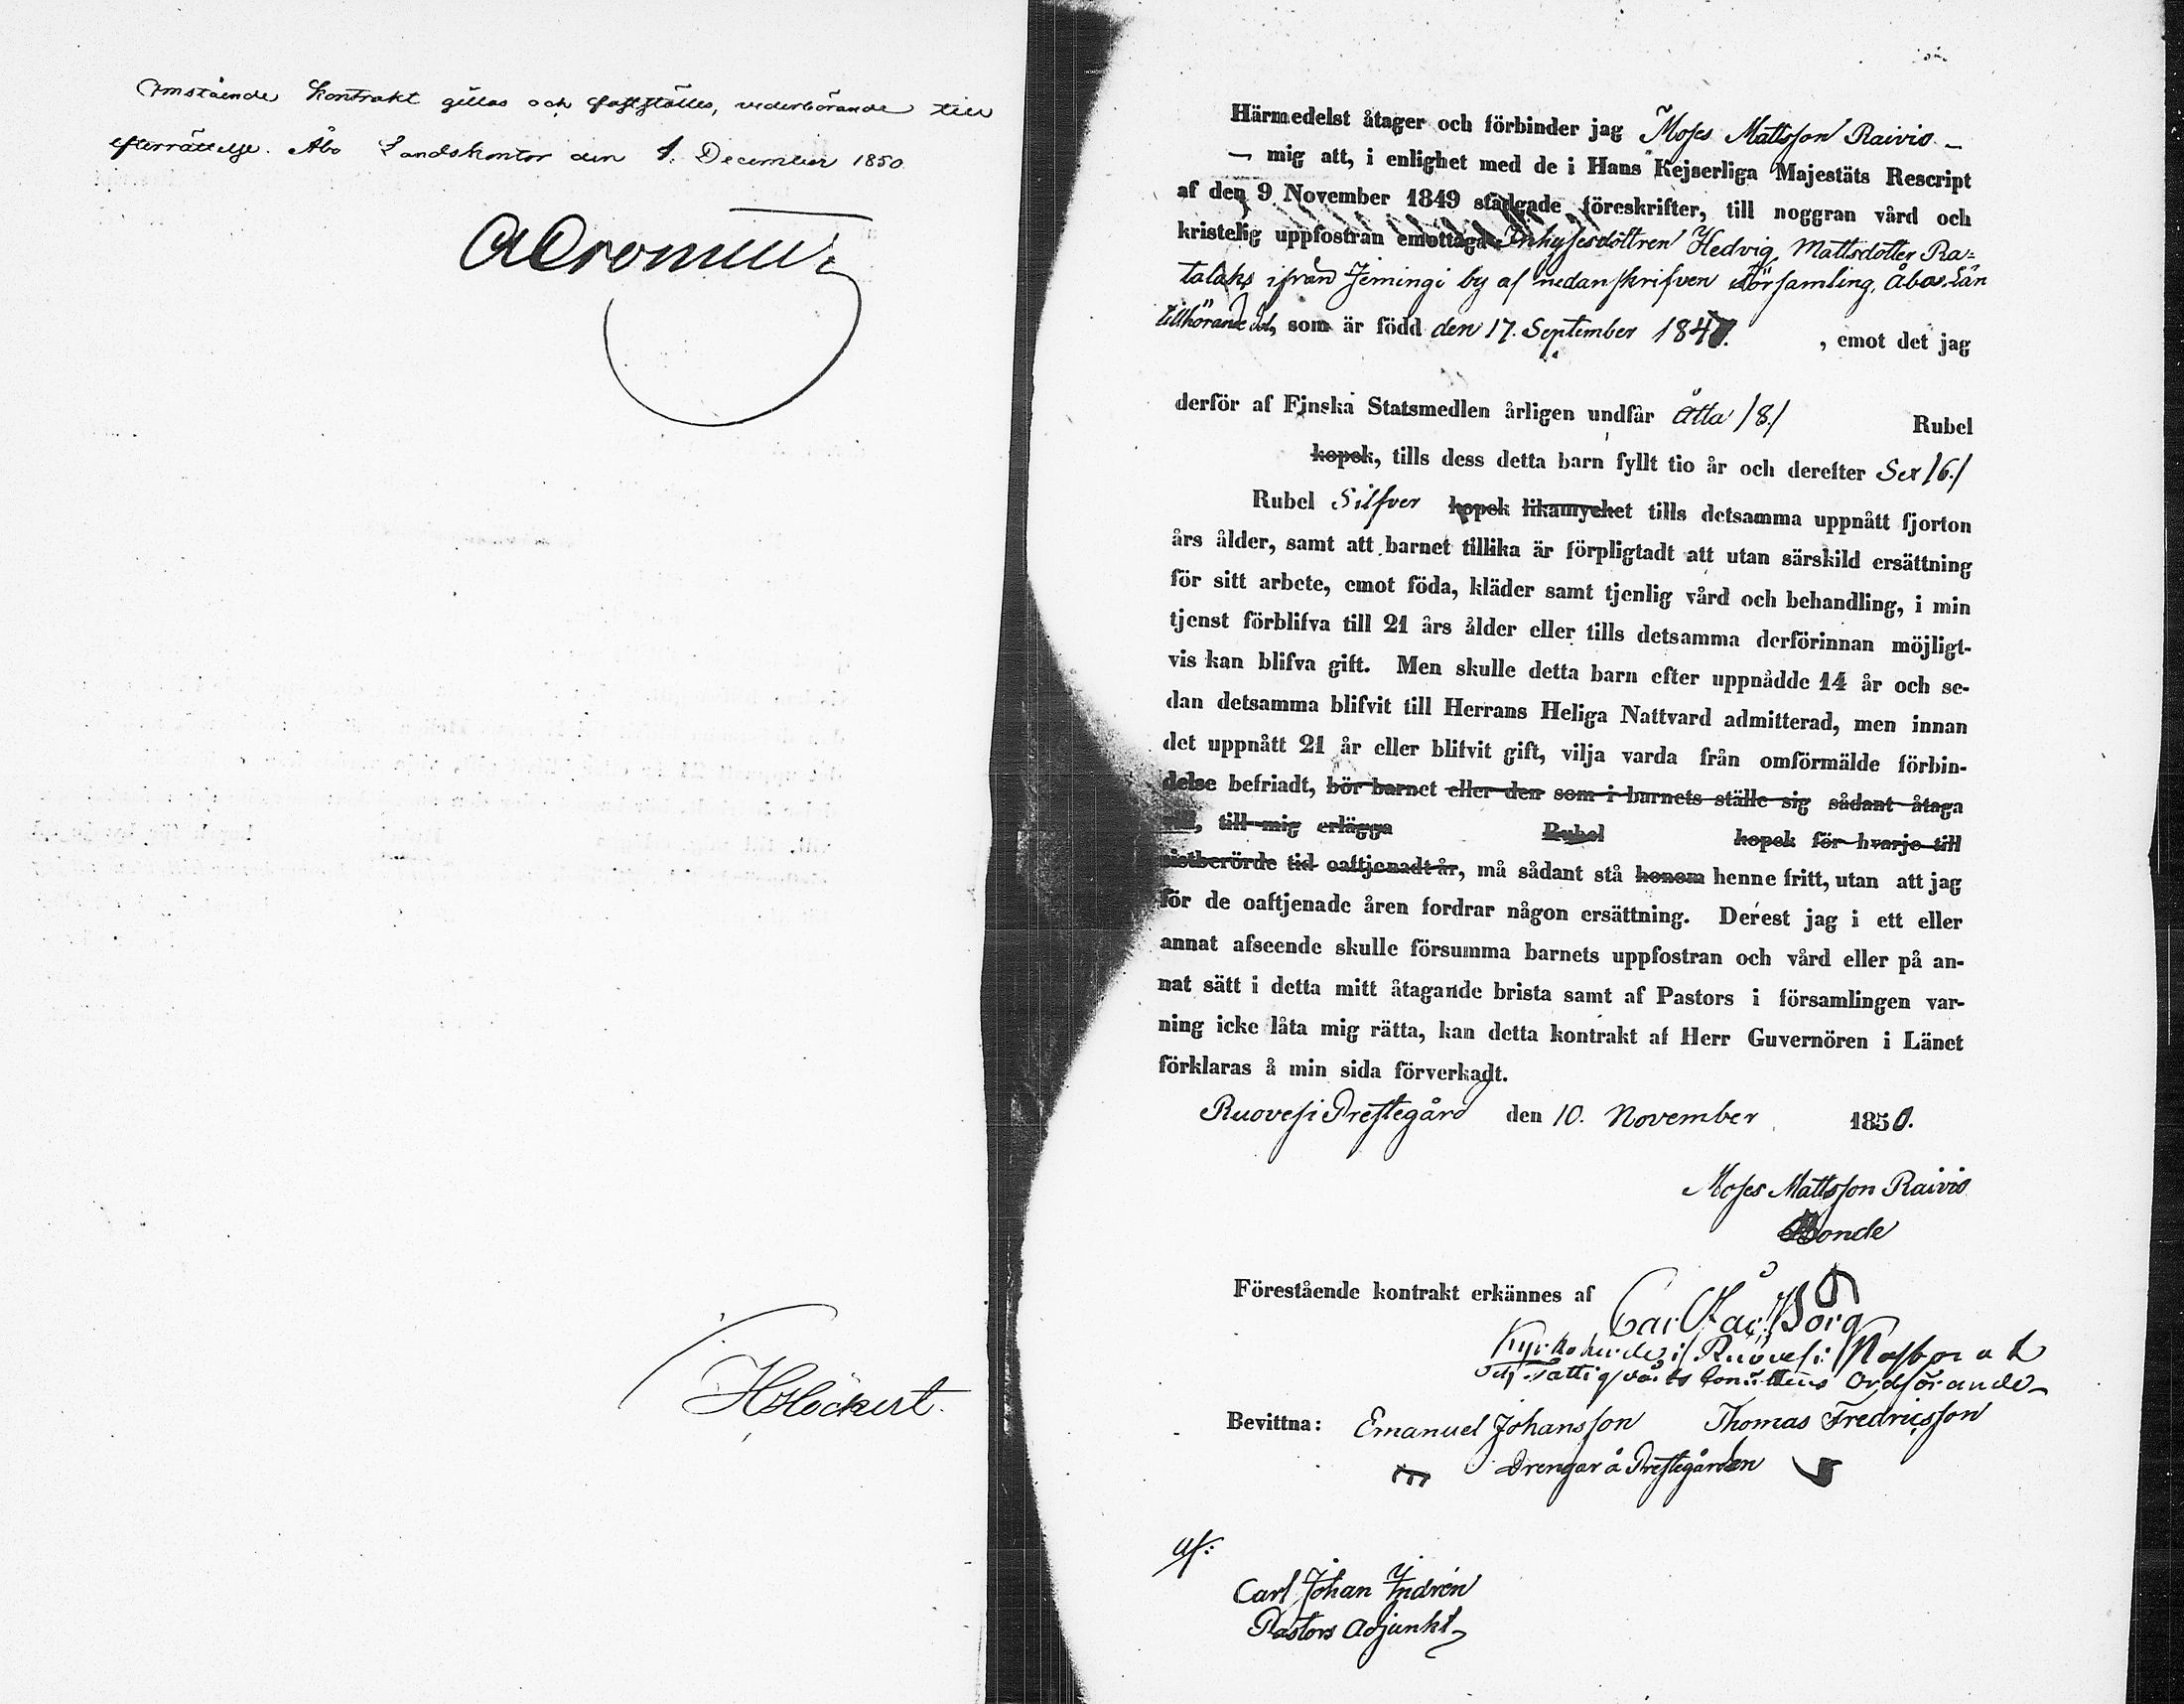 Omstående Kontrakt gillas och fastställes, vederbörande till
efterrättelse. Åbo Landskontor den 1. December 1850.
HHöckert.
Härmedelst åtager och förbinder jag Moses Mattsson Raivio
mig att, i enlighet med de i Hans Kejserliga Majestäts Rescript
af den 9 November 1849 stadgade föreskrifter, till noggran vård och
kristelig uppfostran emottaga Inhysesdottren Hedvig Mattsdotter Ra=
talaks ifrån Jemingi by af nedanskrifven församling, Åbo Län
tillhörande, som är född den 17. September 184 , emot det jag
derför af Finska Statsmedlen årligen undfår Åtta /8./ Rubel
kopek, tills dess detta barn fyllt tio år och derefter Sex /6./
Rubel Silfver kopek likamycket tills detsamma uppnått fjorton
års ålder, samt att barnet tillika är förpligtadt att utan särskild ersättning
för sitt arbete, emot föda, kläder samt tjenlig vård och behandling, i min
tjenst förblifva till 21 års ålder eller tills detsamma derförinnan möjligt-
vis kan blifva gift. Men skulle detta barn efter uppnådde 14 år och se-
dan detsamma blifvit till Herrans Heliga Nattvard admitterad, men innan
det uppnått 21 år eller blifvit gift, vilja varda från omförmälde förbin-
delse befriadt, bör barnet eller den som i barnets ställe sig sådant åtaga
vill, till mig erlägga Rubel kopek för hvarje till
sistberörde tid oaftjenadt år, må sådant stå honom henne fritt, utan att jag
för de oaftjenade åren fordrar någon ersättning. Derest jag i ett eller
annat afseende skulle försumma barnets uppfostran och vård eller på an-
nat sätt i detta mitt åtagande brista samt af Pastors i församlingen var-
ning icke låta mig rätta, kan detta kontrakt af Herr Guvernören i Länet
förklaras å min sida förverkadt.
Ruovesi Prestegård den 10. November 1850.
Moses Mattsson Raivio
Bonde
Förestående kontrakt erkännes af Carl Borg
Kyrkoherde i Ruovesi Pastorat
och Fattigvårds Comitténs Ordförande
Bevittna: Emanuel Johansson Thomas Fredricsson
Drengar å Prestegården
af:
Carl Johan Indrén
Pastors Adjunkt